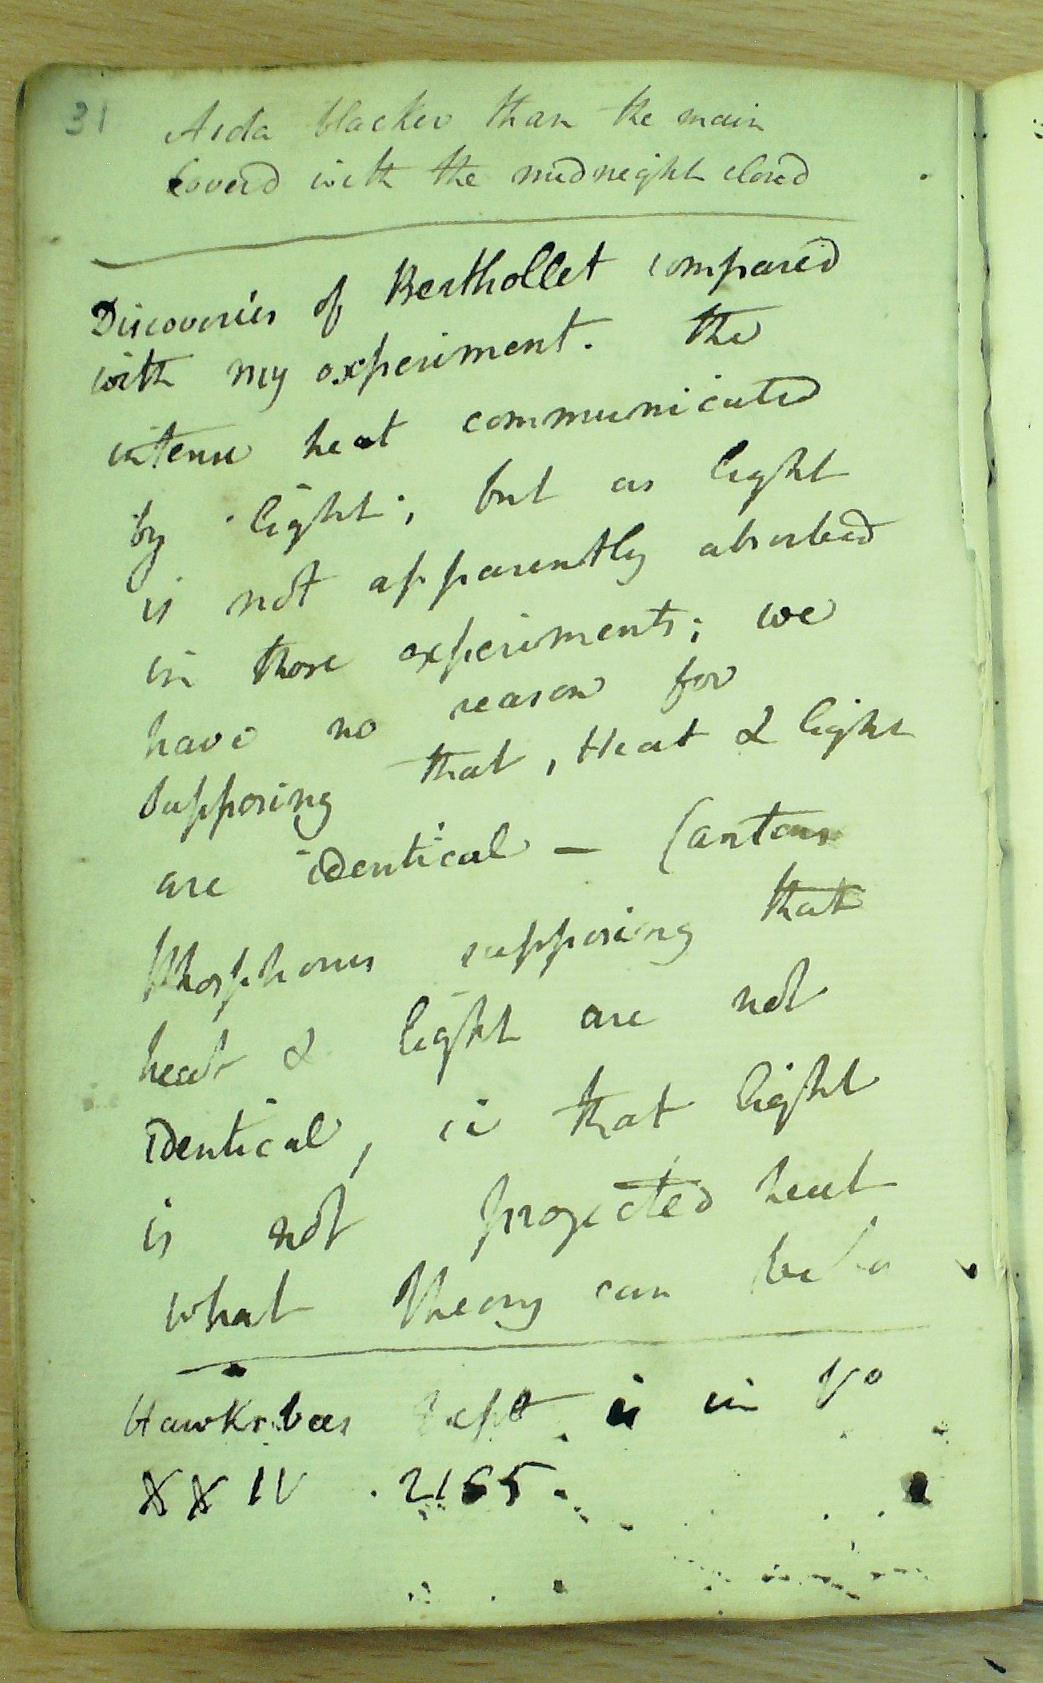 31
Aida blacker than the main
Coverd with the midnight cloud
Discoveries of Berthollet compared
with my experiment. the
intense heat communicated
by light; but as light
is not apparently absorbed
in those experiments; we
have no reason for
supposing that, Heat & light
are identical – Cantons
Phosphorus supposing that
heat & light are not
identical, is that light
is not projected heat
what Theory can be
Hawksbees Expt is in Vo
XXIV . 2165.